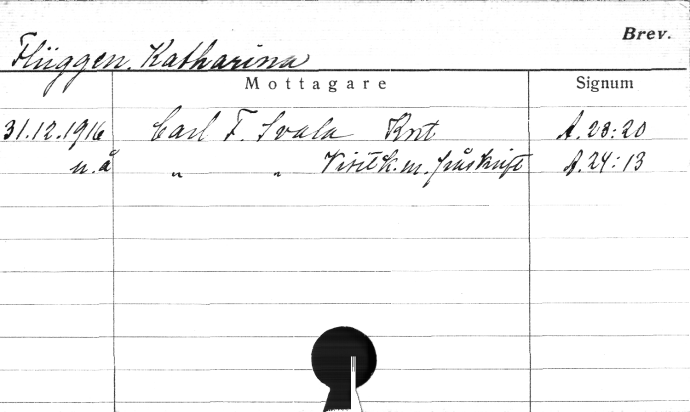 Brev.
Flüggen, Katharina
Mottagare Signum
31.12.1916 Carl F. Svala Knt A.23:20
u.å " " Visitk. m. påskrift A.24:13